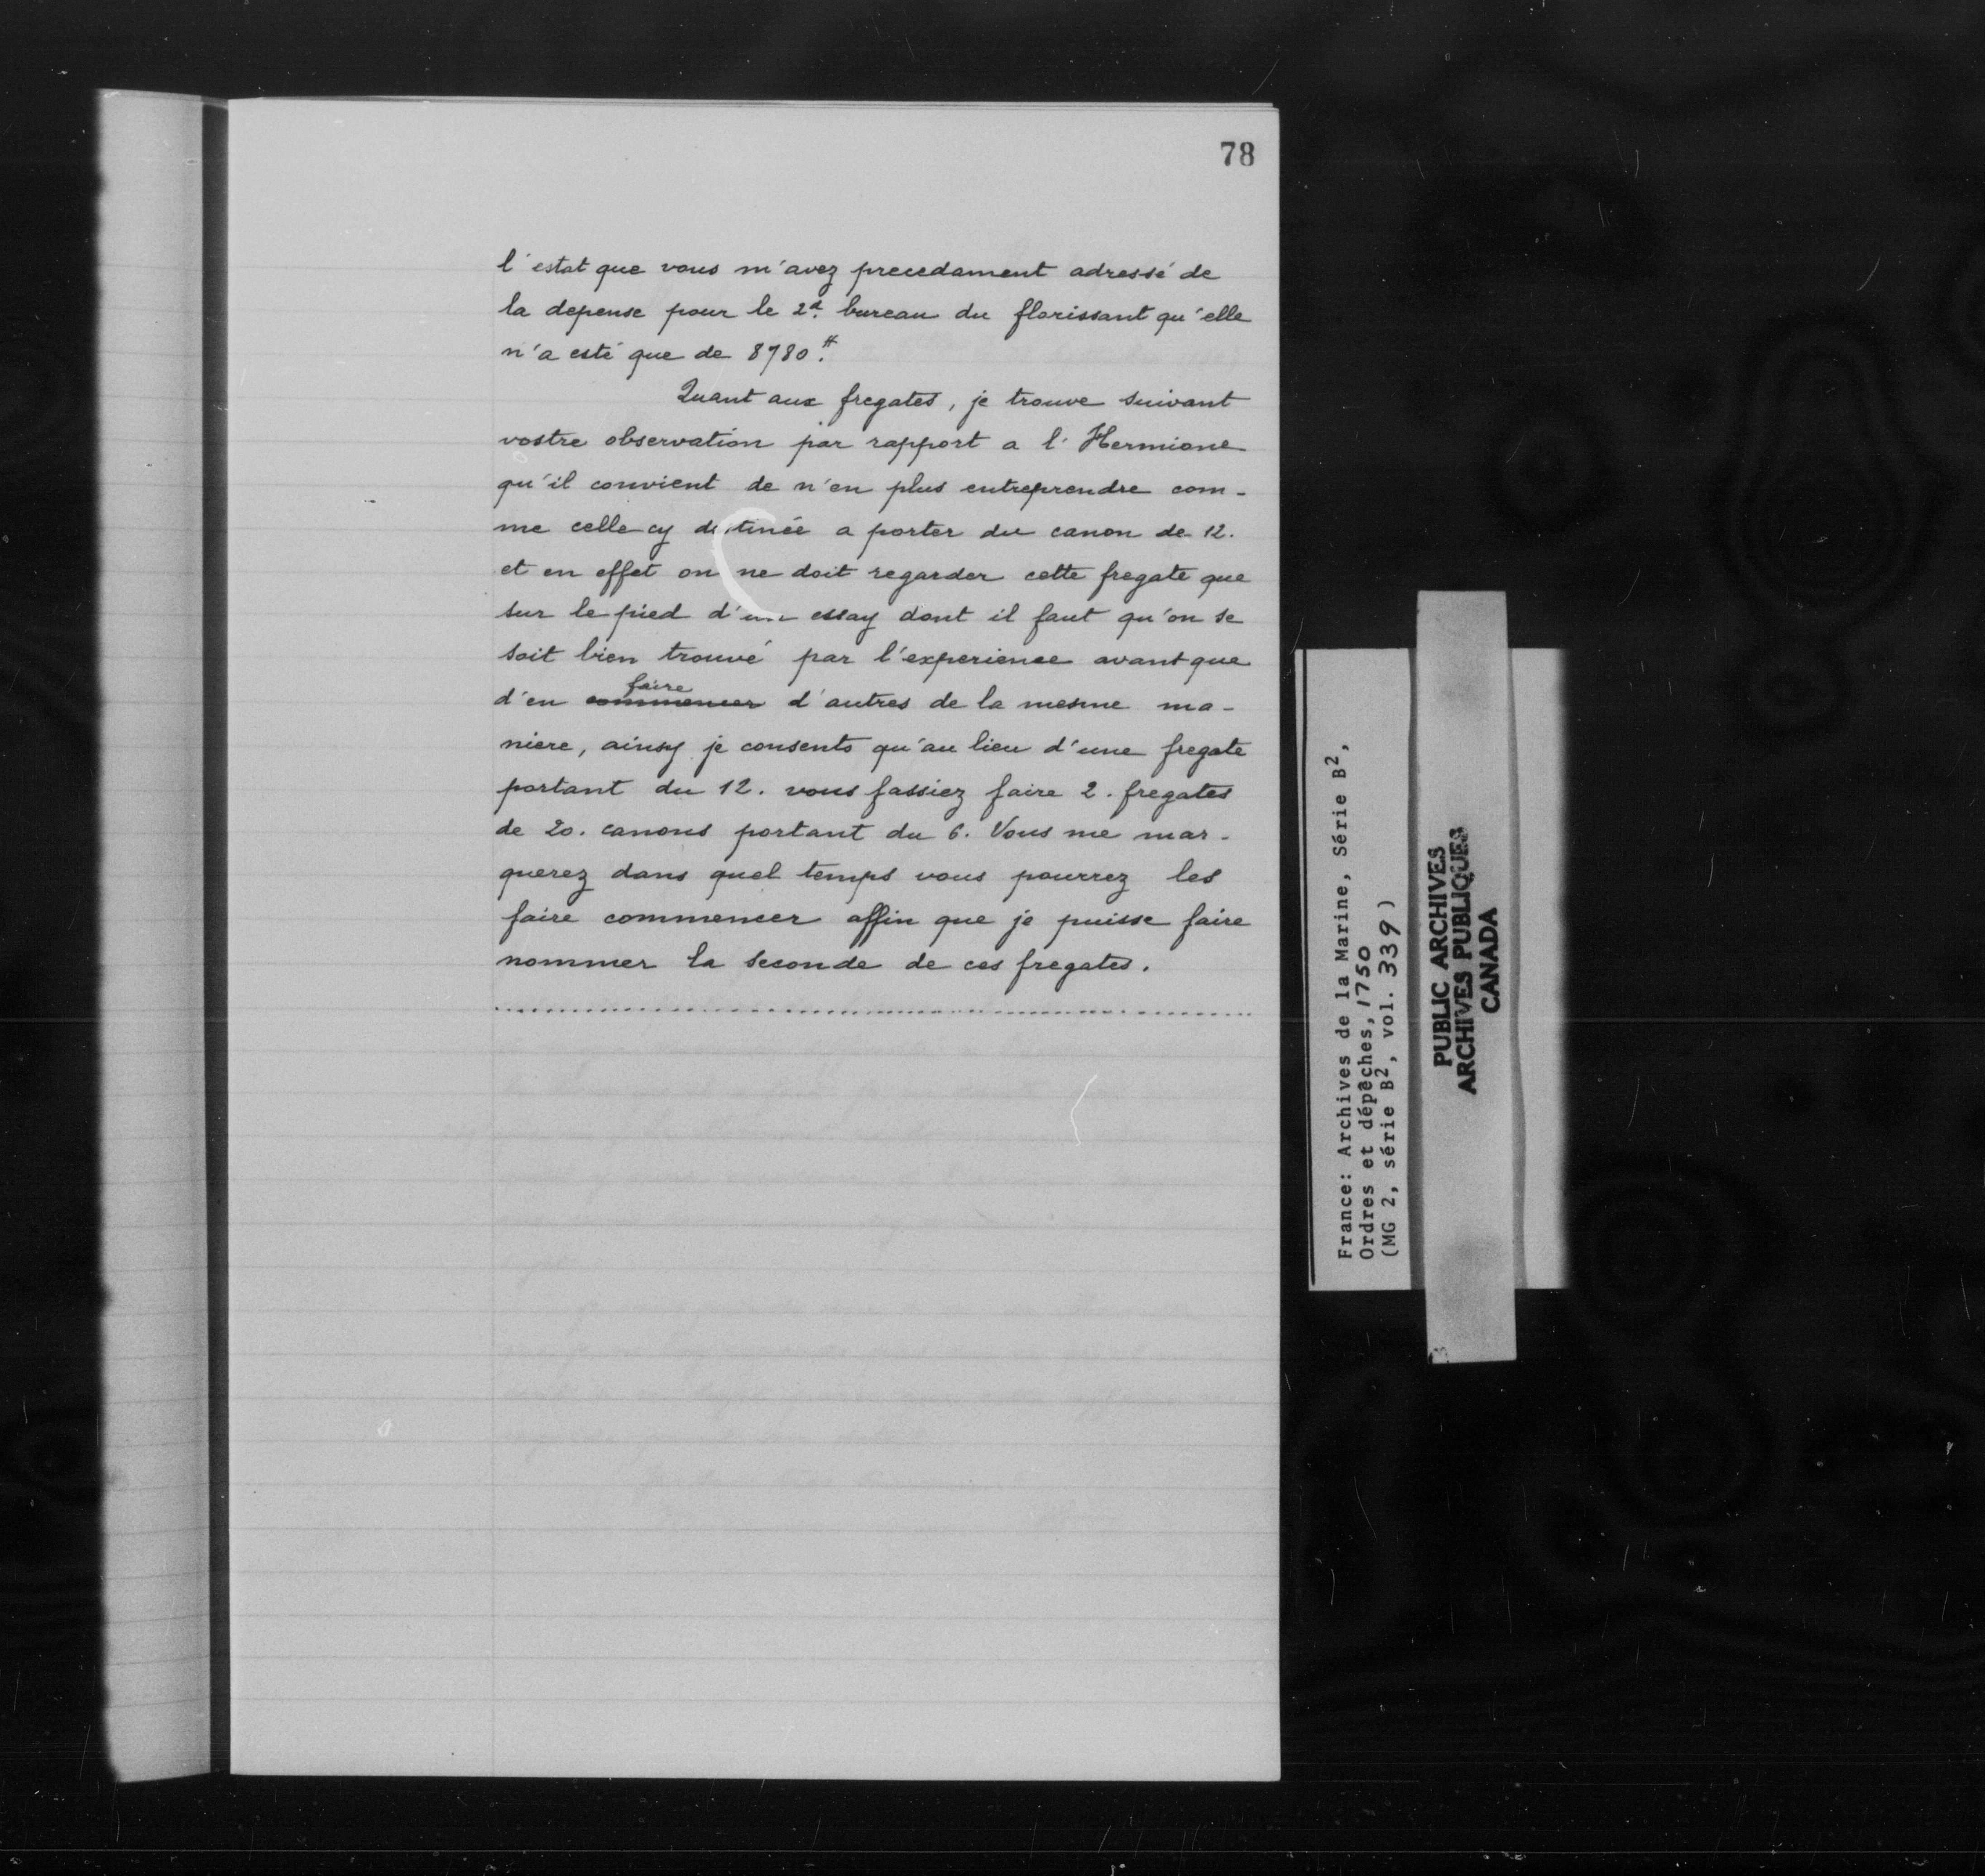 78
l'estat que vous m'avez precedament adressé de
la depense pour le 2d. bureau du florissant qu'elle
n'a esté que de 8780.#
Quant aux fregates, je trouve suivant
vostre observation par rapport a l'Hermione
qu'il convient de n'en plus entreprendre com-
me celle cy destinée a porter du canon de 12.
et en effet on ne doit regarder cette fregate que
sur le pied d'un essay dont il faut qu'on se
soit bien trouvé par l'experience avant que
faire
d'en commencer d'autres de la mesme ma-
niere, ainsy je consents qu'au lieu d'une fregate
portant du 12. vous fassiez faire 2. fregates
de 20. canons portant du 6. Vous me mar-
querez dans quel temps vous pourrez les
faire commencer affin que je puisse faire
nommer la seconde de ces fregates.
France: Archives de la Marine, Série B2,
Ordres et dépêches, 1750
(MG 2, série B2, vol. 339)
PUBLIC ARCHIVES
ARCHIVES PUBLIQUES
CANADA